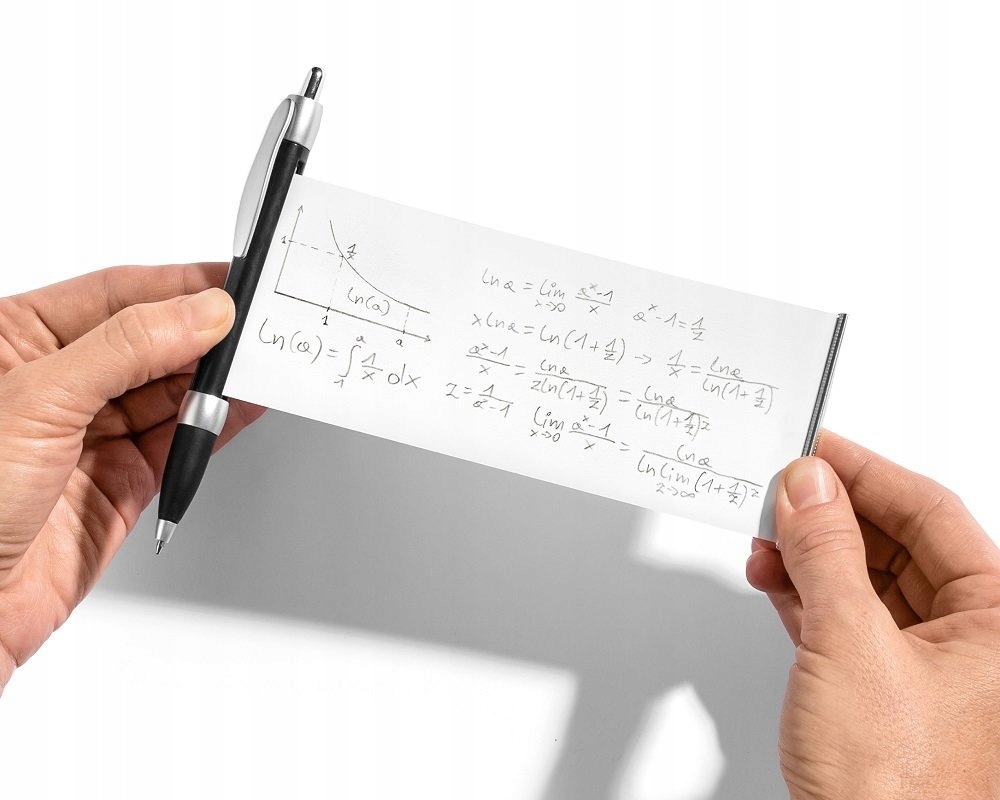 1
1/x
ln(a)
1
a
ln(a) = ∫₁ᵃ 1/x dx
ln a = lim x→0 (aˣ-1)/x aˣ-1 = 1/z
x ln a = ln(1+1/z) → 1/x = ln a/ln(1+1/z)
(aˣ-1)/x = ln a/(z ln(1+1/z)) = ln a/ln(1+1/z)ᶻ
z = 1/(aˣ-1)
lim x→0 (aˣ-1)/x = ln a/(ln lim z→∞ (1+1/z)ᶻ)